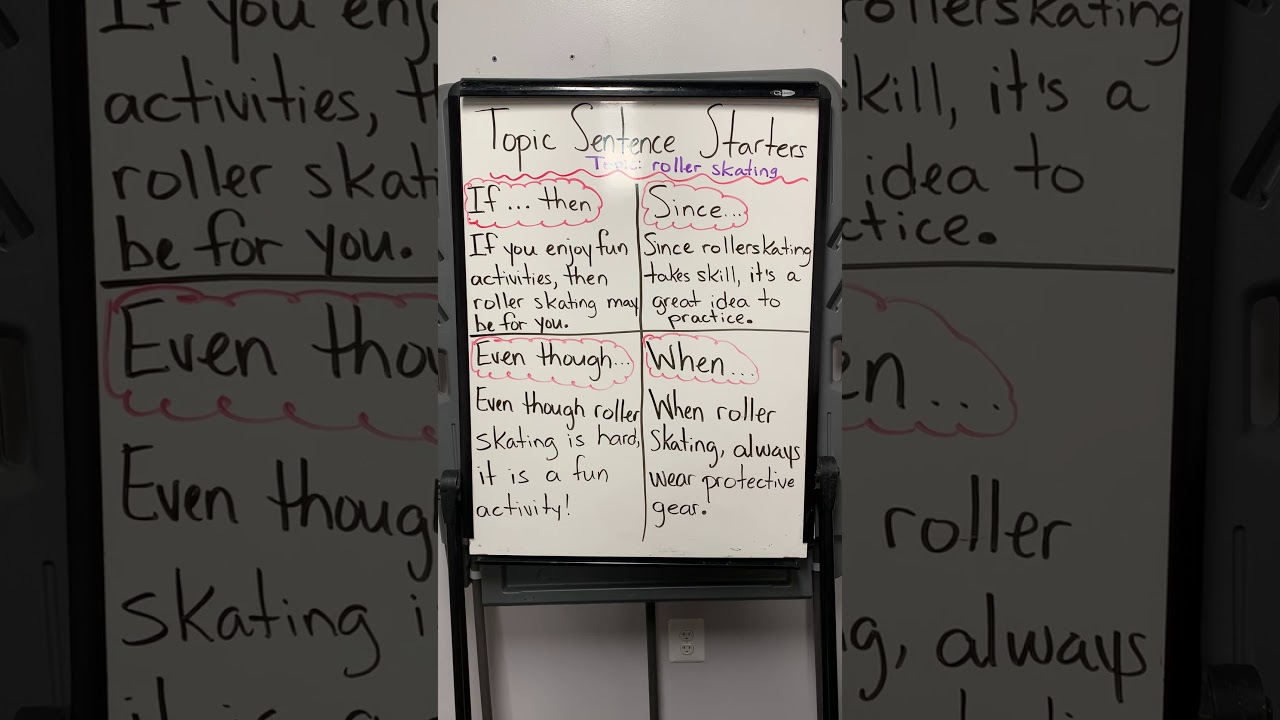 Topic Sentence Starters
Topic: roller skating
If... then
If you enjoy fun
activities, then
roller skating may
be for you.
Since...
Since rollerskating
takes skill, it's a
great idea to
practice.
Even though...
Even though roller
skating is hard,
it is a fun
activity!
When...
When roller
skating, always
wear protective
gear.